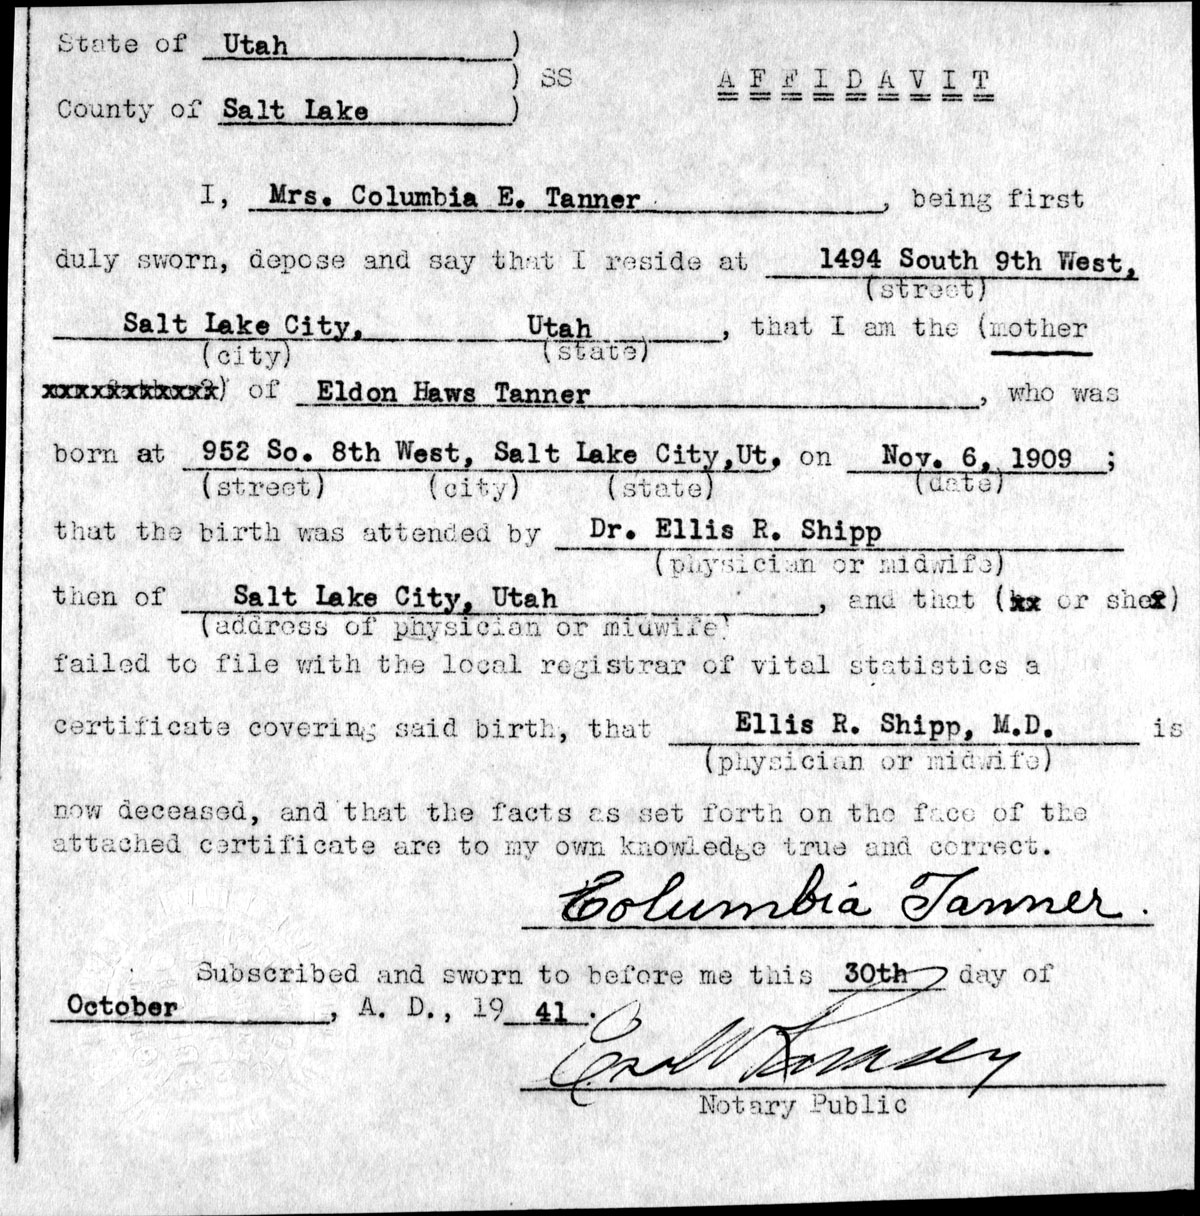 State of Utah )
) SS AFFIDAVIT
County of Salt Lake )
I, Mrs. Columbia E. Tanner , being first
duly sworn, depose and say that I reside at 1494 South 9th West,
(street)
Salt Lake City, Utah , that I am the (mother
(city) (state)
) of Eldon Haws Tanner , who was
born at 952 So. 8th West, Salt Lake City,Ut. on Nov. 6, 1909 ;
(street) (city) (state) (date)
that the birth was attended by Dr. Ellis R. Shipp
(physician or midwife)
then of Salt Lake City, Utah , and that (xx or shex)
(address of physician or midwife)
failed to file with the local registrar of vital statistics a
certificate covering said birth, that Ellis R. Shipp, M.D. is
(physician or midwife)
now deceased, and that the facts as set forth on the face of the
attached certificate are to my own knowledge true and correct.
Columbia Tanner.
Subscribed and sworn to before me this 30th day of
October , A. D., 19 41 .
Notary Public